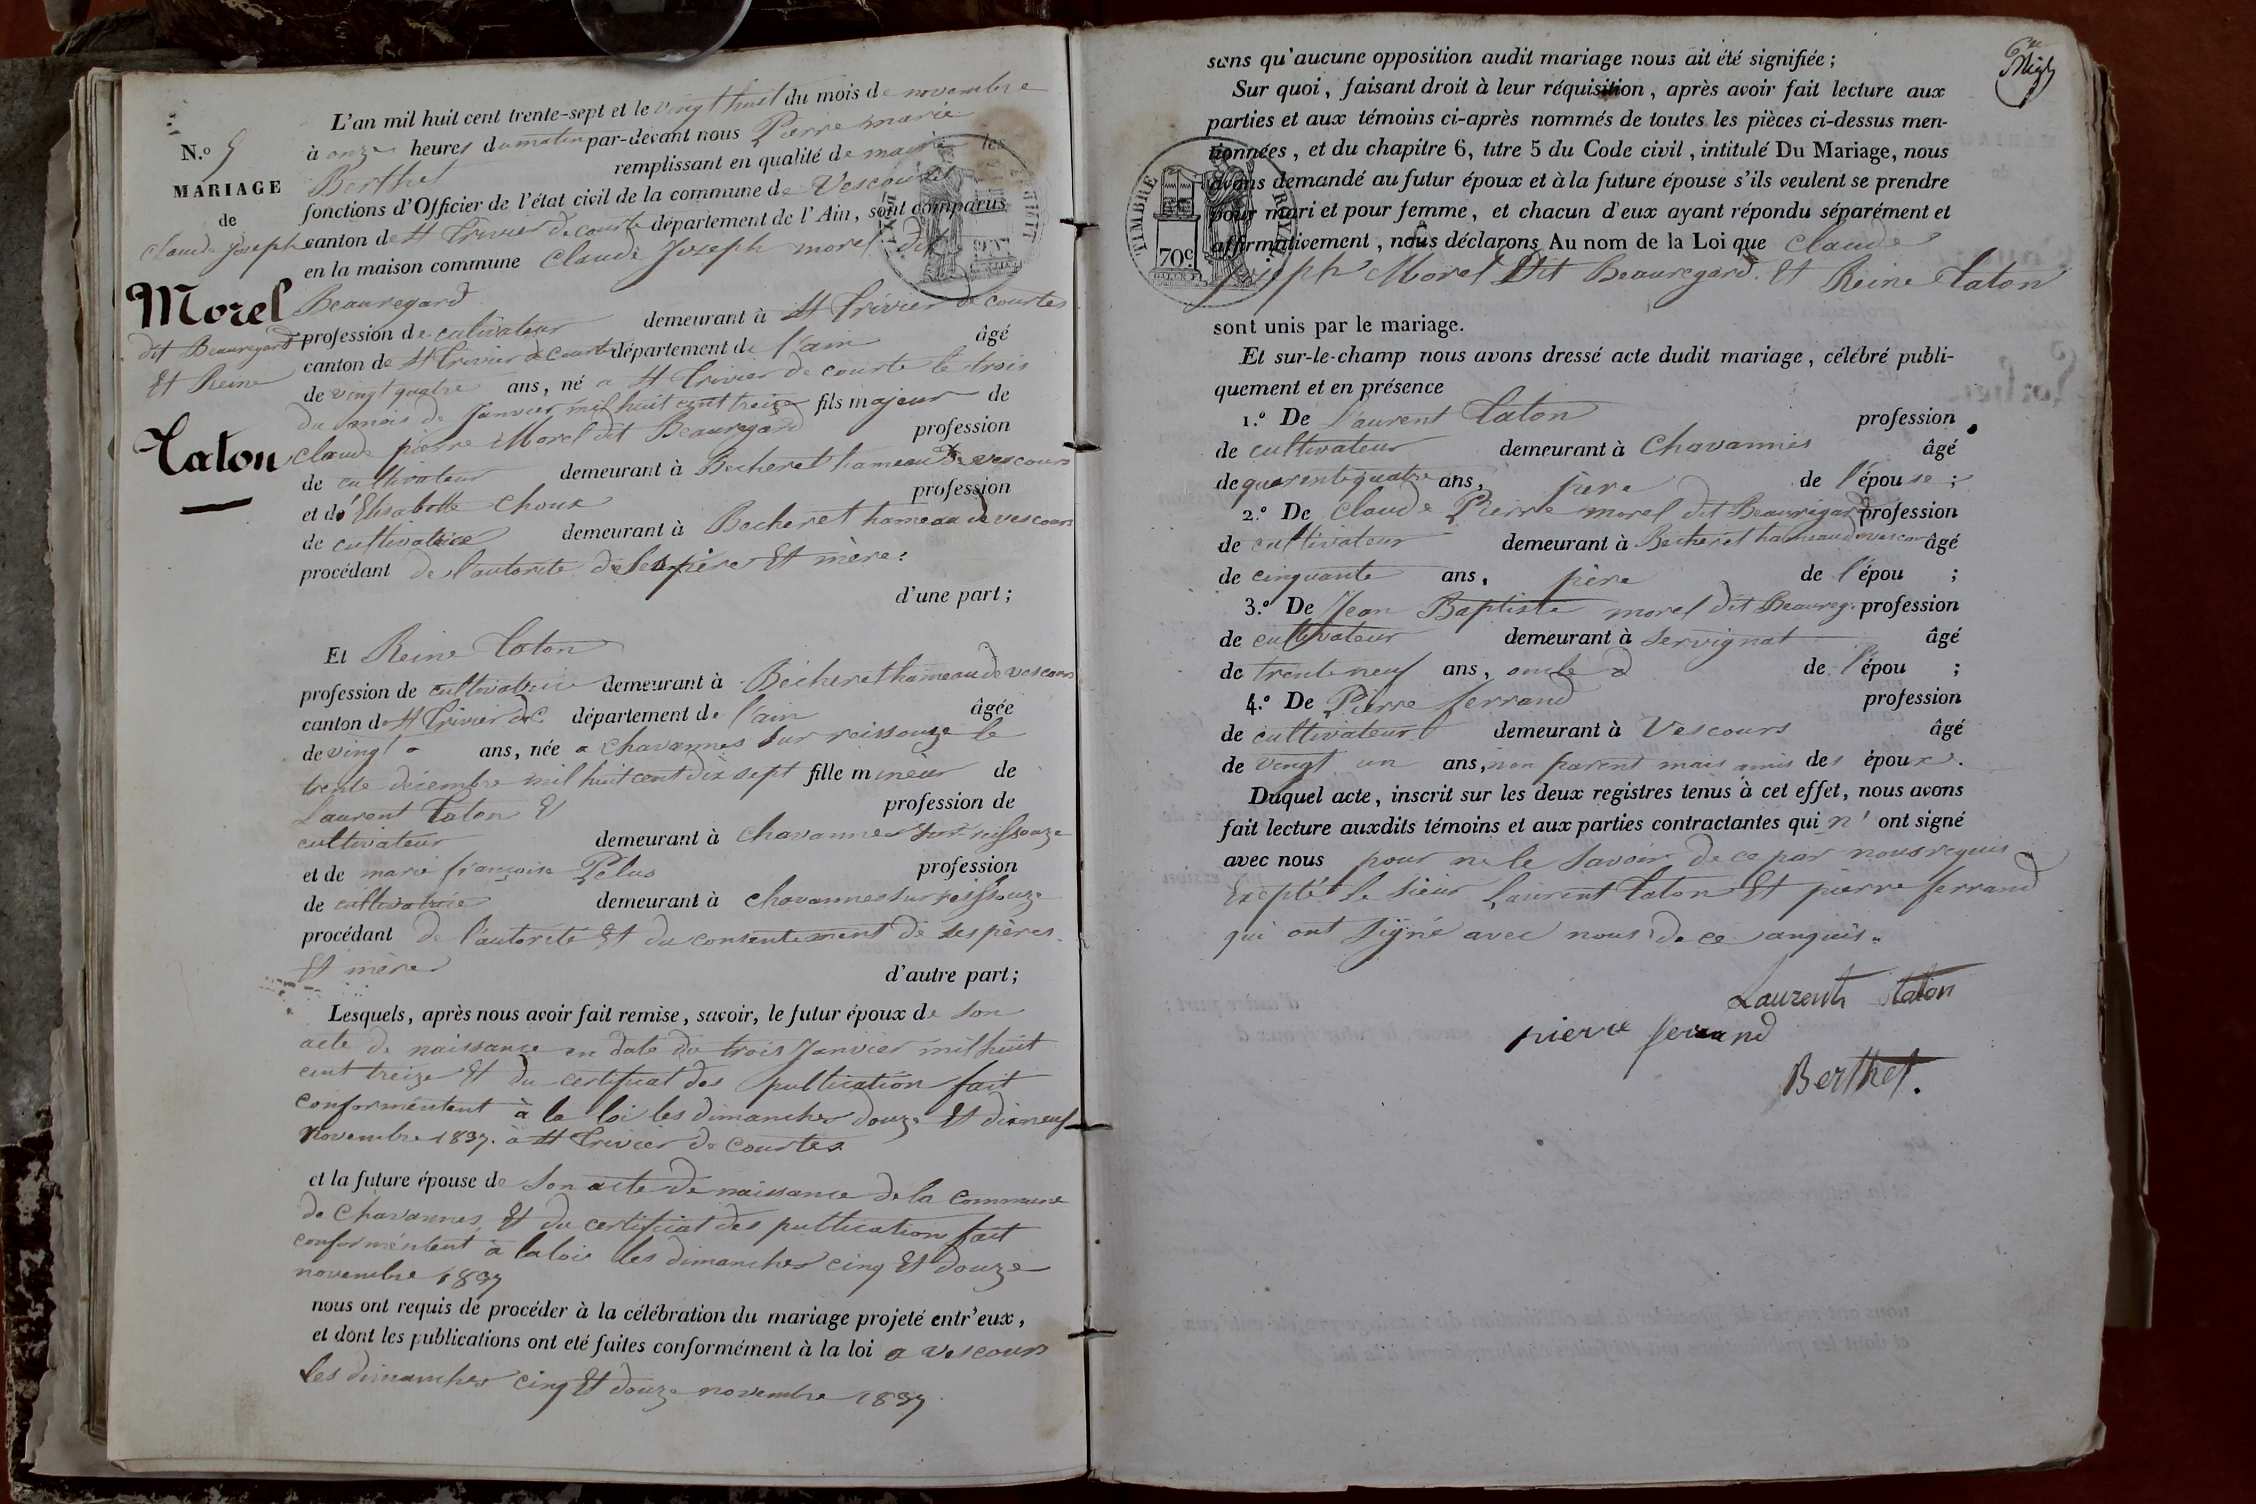 L'an mil huit cent trente-sept et le vingt huit du mois de novembre
à onze heures du matin par-devant nous Pierre marie
Berthet remplissant en qualité de maire les
fonctions d'Officier de l'état civil de la commune de Vescours
canton de St Trivier de courte département de l'Ain, sont comparus
en la maison commune Claude Joseph morel dit
Beauregard
profession de cultivateur demeurant à St Trivier de courtes
canton de St Trivier de Courte département de l'ain âgé
de vingt quatre ans, né a St Trivier de courte le trois
du mois de Janvier mil huit cent treize fils majeur de
claude pierre Morel dit Beauregard profession
de cultivateur demeurant à Becheret hameau de vescours
et de Elisabette Choux profession
de cultivatrice demeurant à Becheret hameau de vescours
procédant de l'autorité de ses père Et mère
d'une part ;
N.º 5
MARIAGE
de
Claude Joseph
Morel
dit Beauregard
Et Reine
Taton
Et Reine Taton
profession de cultivatrice demeurant à Bécheret hameau de vescours
canton de St Trivier de C. département de l'ain âgée
de vingt ans, née a Chavannes sur reissouze le
trente décembre mil huit cent dix sept fille mineur de
Laurent Taton profession de
cultivateur demeurant à Chavannes sur reissouze
et de marie françoise Pelus profession
de cultivatrice demeurant à chavannes sur reissouze
procédant de l'autorité Et du consentement de ses pères
Et mère
d'autre part ;
Lesquels, après nous avoir fait remise, savoir, le futur époux de son
acte de naissance en date du trois Janvier mil huit
cent treize Et du certificat des publication fait
conformément à la loi les dimanches douze Et dixneuf
Novembre 1837. à St Trivier de Courtes
et la future épouse de Son acte de naissance de la Commune
de Chavannes, Et du certificat des publication fait
conformément à la loi les dimanches cinq Et douze
novembre 1837
nous ont requis de procéder à la célébration du mariage projeté entr'eux,
et dont les publications ont été faites conformément à la loi a vescours
les dimanches cinq Et douze novembre 1837
6me
sans qu'aucune opposition audit mariage nous ait été signifiée ;
Sur quoi, faisant droit à leur réquisition, après avoir fait lecture aux
parties et aux témoins ci-après nommés de toutes les pièces ci-dessus men-
tionnées, et du chapitre 6, titre 5 du Code civil, intitulé Du Mariage, nous
avons demandé au futur époux et à la future épouse s'ils veulent se prendre
pour mari et pour femme, et chacun d'eux ayant répondu séparément et
affirmativement, nous déclarons Au nom de la Loi que Claude
Joseph Morel Dit Beauregard Et Reine Taton
TIMBRE ROYAL
70c.
sont unis par le mariage.
Et sur-le-champ nous avons dressé acte dudit mariage, célébré publi-
quement et en présence
1.º De Laurent Taton profession
de cultivateur demeurant à Chavannes âgé
de quarente quatre ans, père de l'épouse ;
2.º De Claude Pierre morel dit Beauregard profession
de cultivateur demeurant à Bécheret hameau de vescours âgé
de cinquante ans, père de l'épou ;
3.º De Jean Baptiste morel dit Beaureg. profession
de cultivateur demeurant à Servignat âgé
de trente neuf ans, oncle de l'épou ;
4.º De Pierre ferrand profession
de cultivateur demeurant à Vescours âgé
de Vingt un ans, non parent mais amis des époux.
Duquel acte, inscrit sur les deux registres tenus à cet effet, nous avons
fait lecture auxdits témoins et aux parties contractantes qui n' ont signé
avec nous pour ne le savoir de ce par nous requis
Excepté le sieur Laurent Taton Et pierre ferrand
qui ont Signé avec nous de ce anquis
Laurent Taton
pierre ferrand
Berthet.